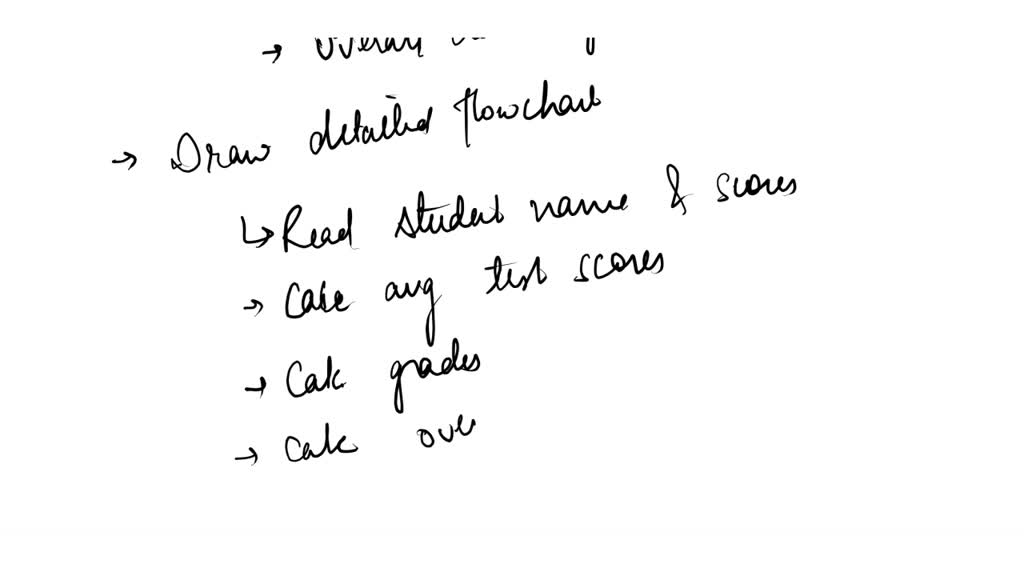 → Overall
→ Draw detailed flowchart
↳ Read student name & scores
→ Calc avg test scores
→ Calc grades
→ Calc ove